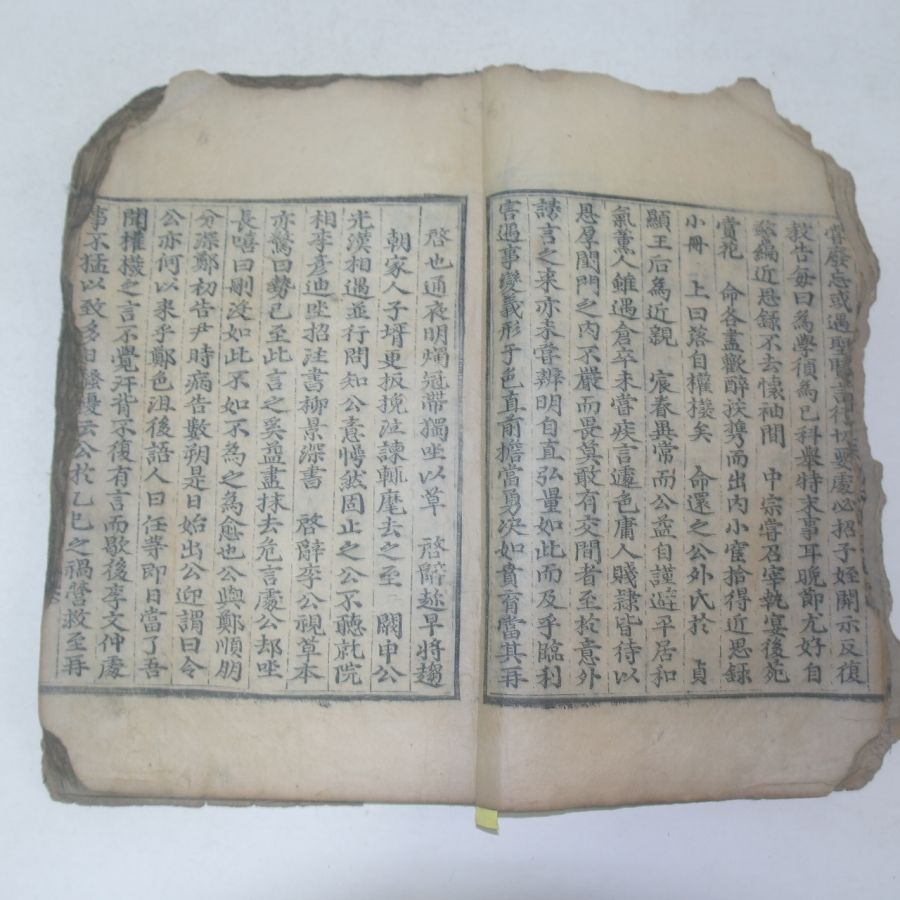 嘗發忘或遇聖賢言行切要處必招子姪開示反復
教告每曰為學須為己科舉特末事耳晩節尤好自
警編近思錄不去懷袖間 中宗嘗召宰執宴後苑
賞花 命各盡歡醉扶携而出內小宦拾得近思録
小冊 上曰落自權橃矣 命還之公外氏於 貞
顯王后為近親 宸眷異常而公益自謹避平居和
氣薰人雖遇倉卒未嘗疾言遽色庸人賤隷皆待以
恩厚閨門之內不嚴而畏莫敢有交間者至於意外
謗言之來亦未嘗辨明自直弘量如此而及乎臨利
害遇事變義形于色直前擔當勇決如賁育當其再
啓也通夜明燭冠帶獨坐以草 啓辭趁早將趨
朝家人子壻更扳挽泣諫輒麾去之至 闕申公
光漢相遇並行問知公意愕然固止之公不聽就院
相李彥迪坐招注書柳景深書 啓辭李公視草本
亦驚曰勢已至此言之奚益盡抹去危言處公却坐
長嘻曰刪沒如此不如不為之為愈也公與鄭順朋
分深鄭初告尹時病告數朔是日始出公迎謂曰令
公亦何以来乎鄭色沮後語人曰任等即日當了吾
聞權橃之言不覺汗背不復有言而歇後李文仲處
事不猛以致多日騷擾云公於乙巳之禍營救至再